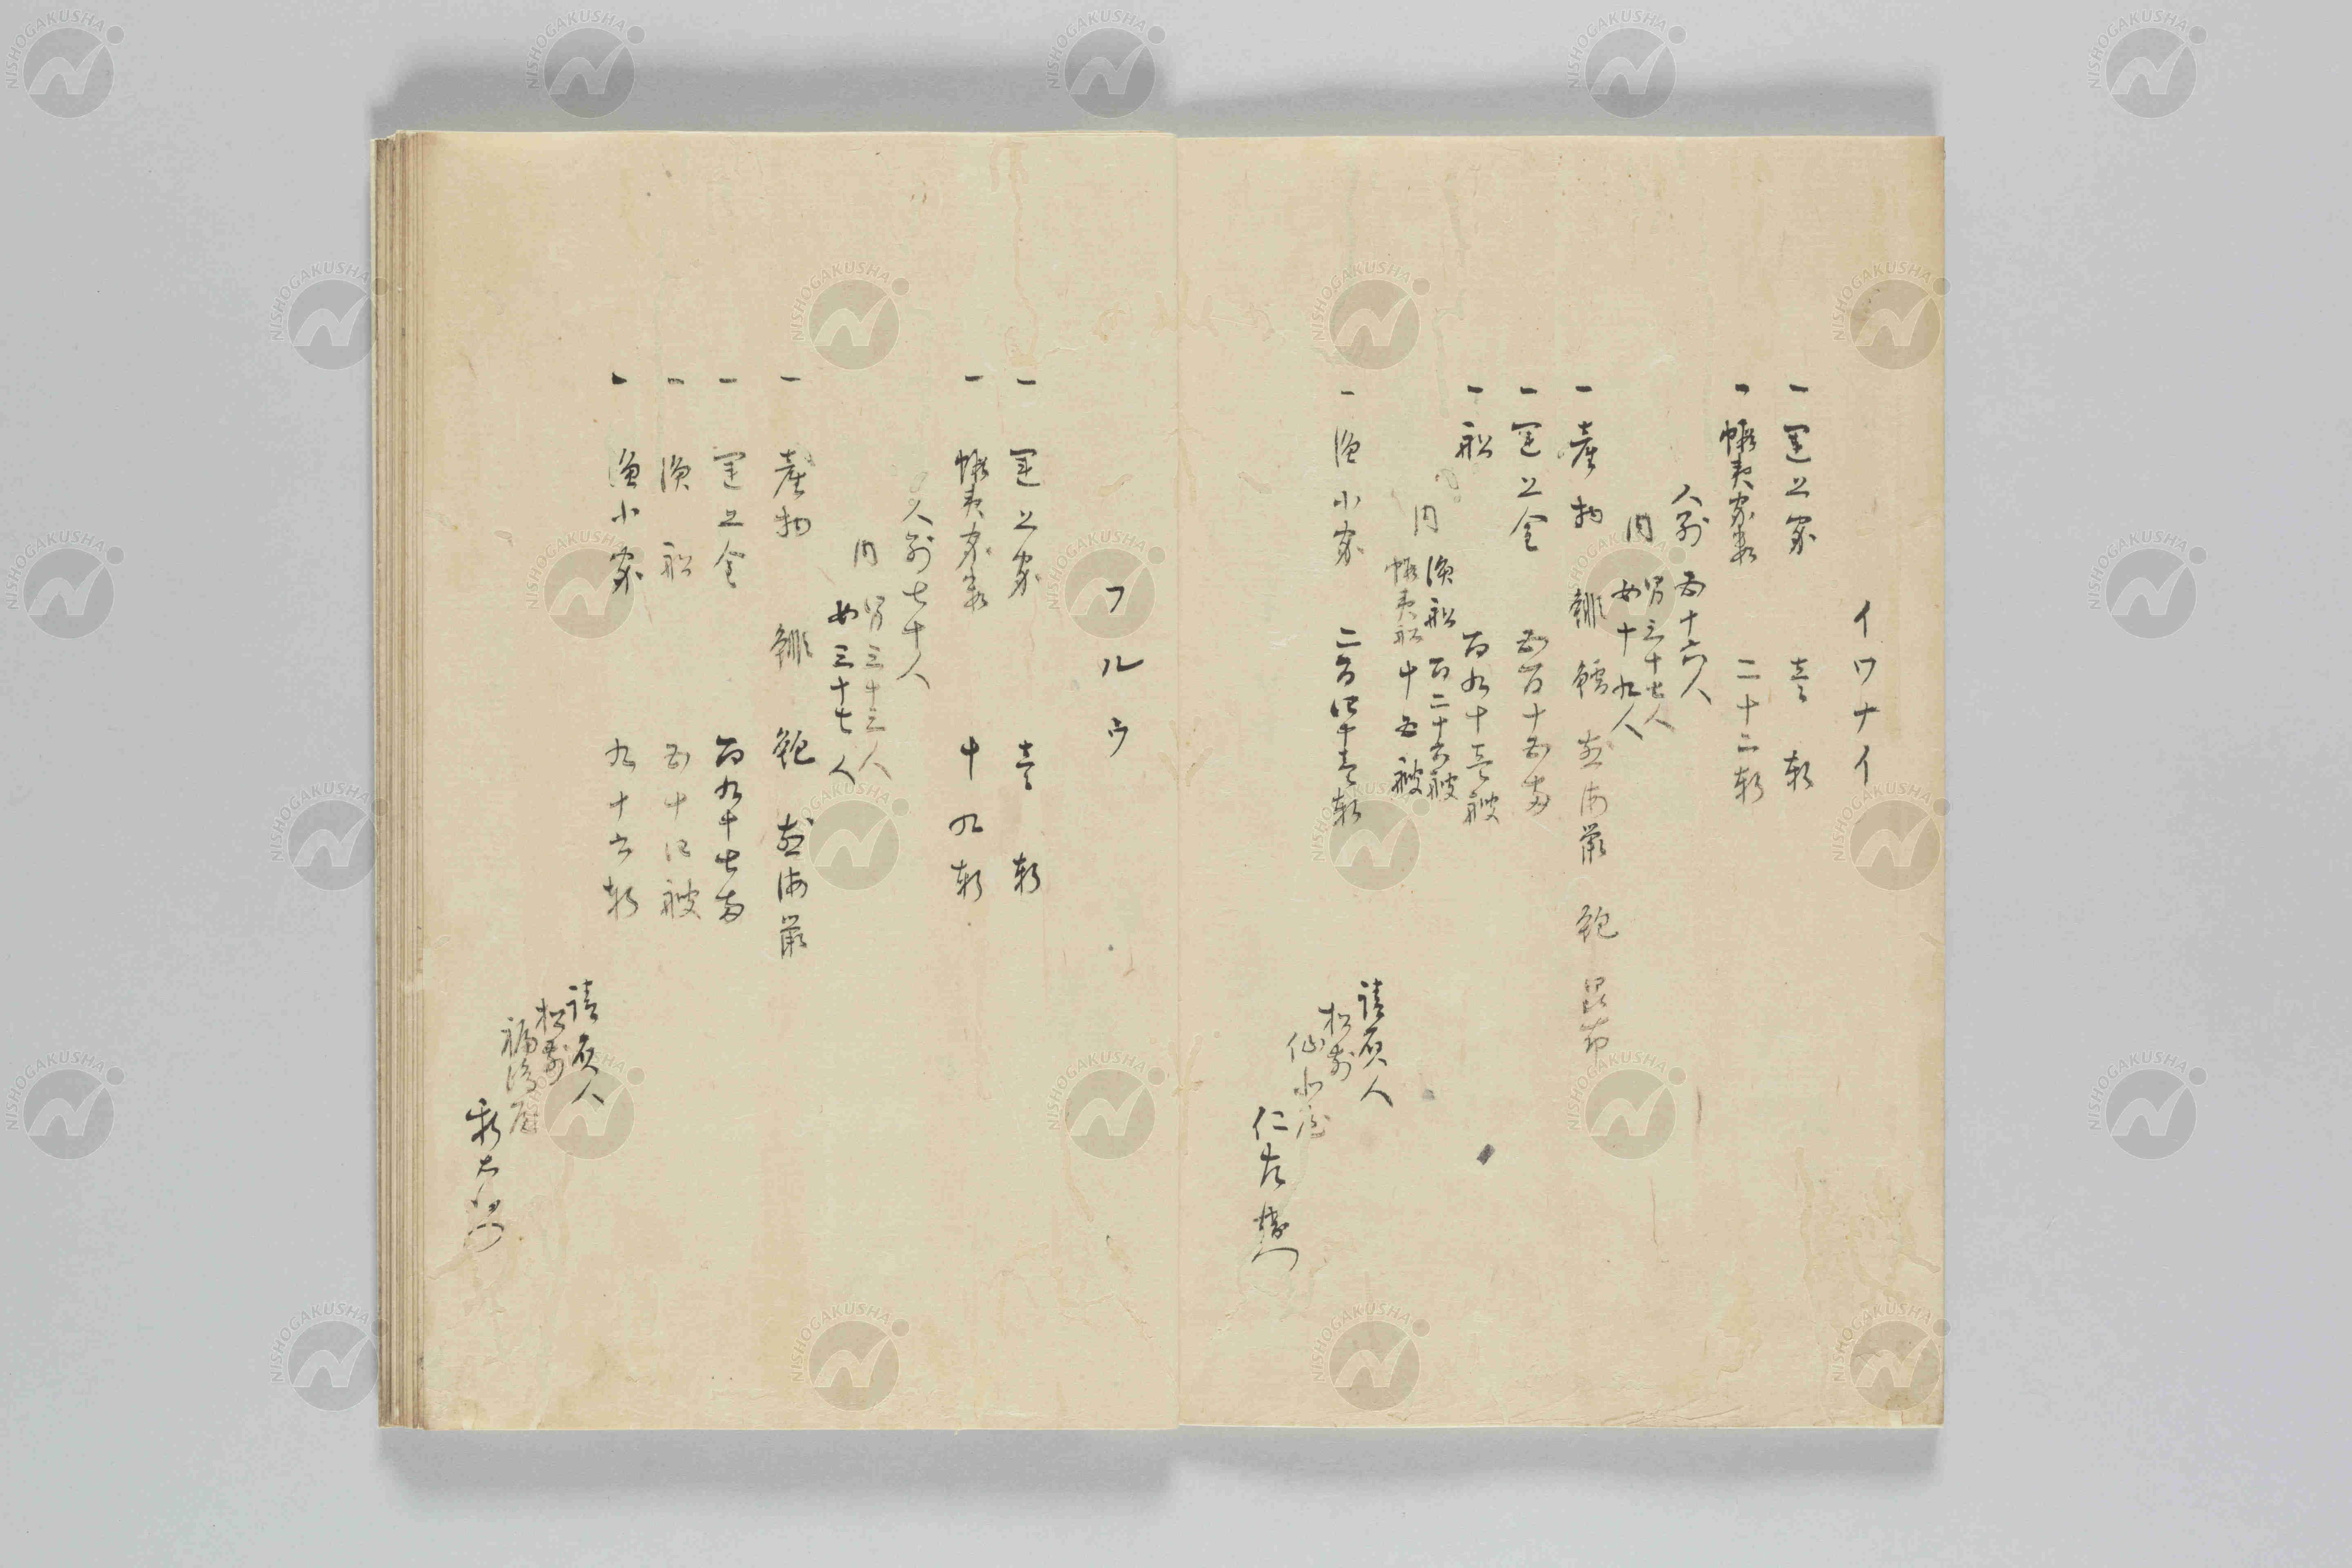 イワナイ
一 運上家 壱軒
一 蝦夷家数 二十二軒
人別 五十六人
内 男三十七人
女十九人
一 産物 鯡 鱈 煎海鼠 鮑 昆布
一 運上金 五百十五両
一 船 百九十壱艘
内 漁船 百二十六艘
蝦夷船 十五艘
一 漁小家 二百四十壱軒
請負人
松前
仙北屋
仁左衛門
フルウ
一 運上家 壱軒
一 蝦夷家数 十九軒
人別七十人
内 男三十三人
女三十七人
一 産物 鯡 鮑 煎海鼠
一 運上金 百九十七両
一 漁船 五十四艘
一 漁小家 九十六軒
請負人
松前
福嶋屋
新右衛門
NISHOGAKUSHA